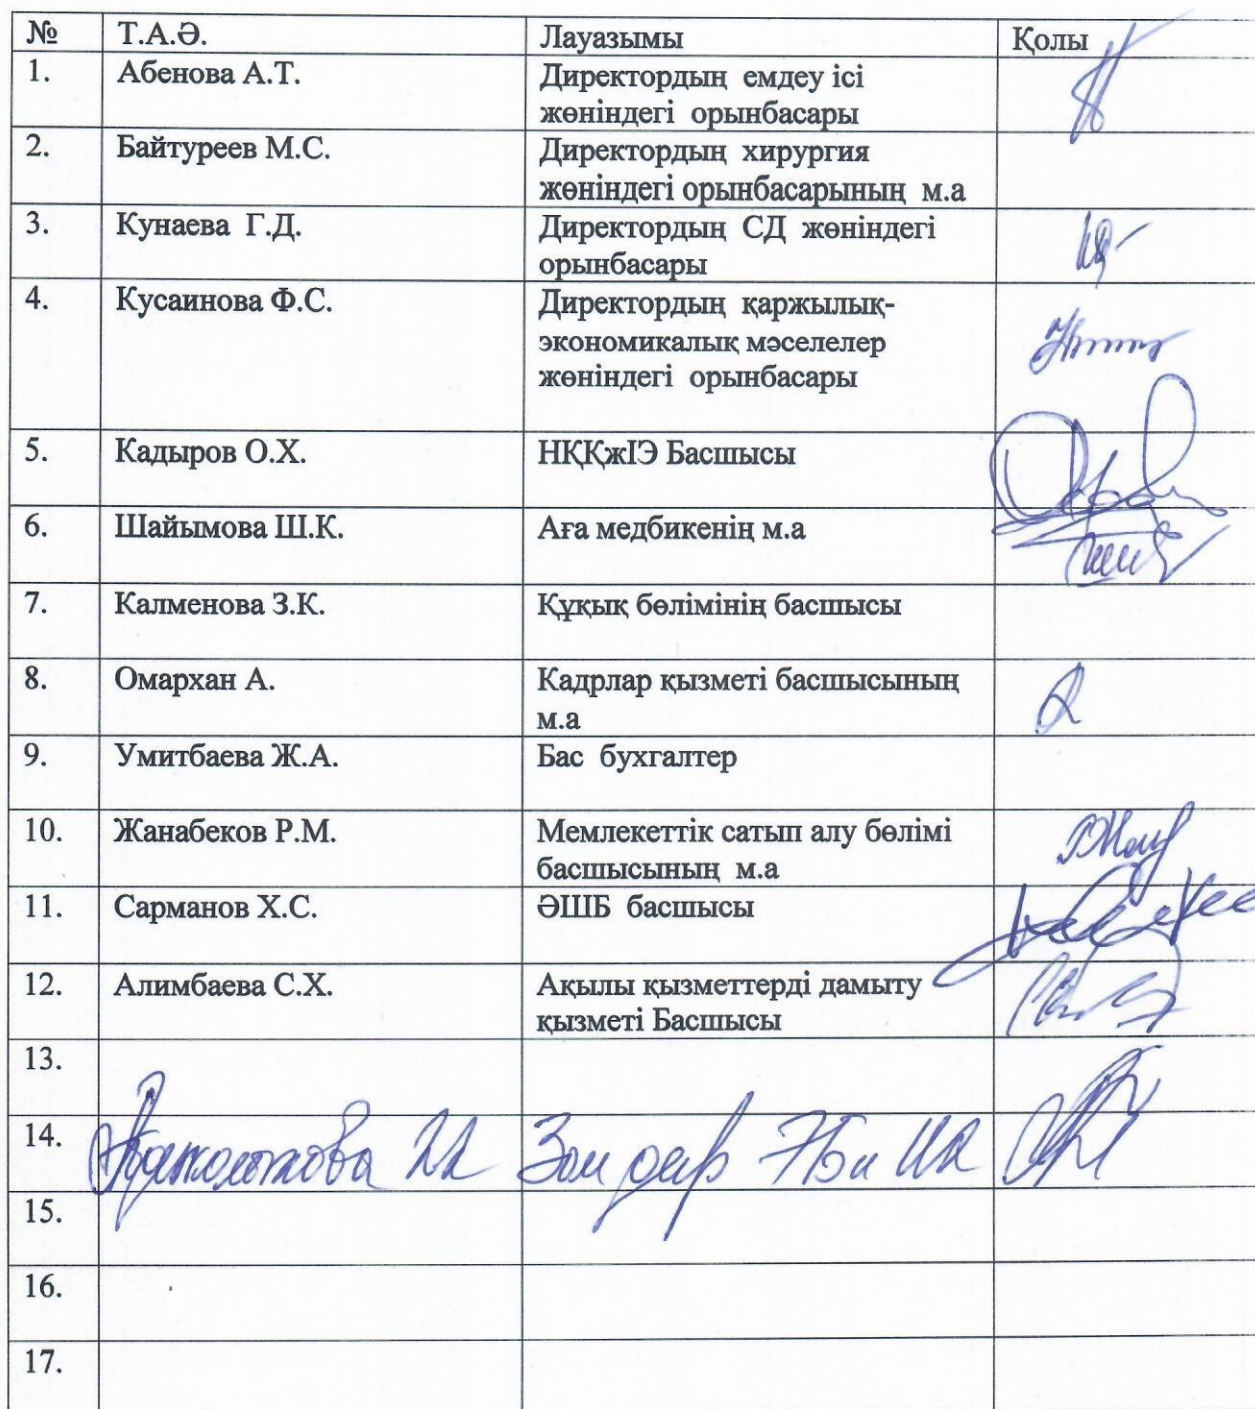 № Т.А.Ә. Лауазымы Қолы
1. Абенова А.Т. Директордың емдеу ісі
жөніндегі орынбасары
2. Байтуреев М.С. Директордың хирургия
жөніндегі орынбасарының м.а
3. Кунаева Г.Д. Директордың СД жөніндегі
орынбасары
4. Кусаинова Ф.С. Директордың қаржылық-
экономикалық мәселелер
жөніндегі орынбасары
5. Кадыров О.Х. НҚҚжІЭ Басшысы
6. Шайымова Ш.К. Аға медбикенің м.а
7. Калменова З.К. Құқық бөлімінің басшысы
8. Омархан А. Кадрлар қызметі басшысының
м.а
9. Умитбаева Ж.А. Бас бухгалтер
10. Жанабеков Р.М. Мемлекеттік сатып алу бөлімі
басшысының м.а
11. Сарманов Х.С. ӘШБ басшысы
12. Алимбаева С.Х. Ақылы қызметтерді дамыту
қызметі Басшысы
13.
14. Зам дир
15.
16.
17.